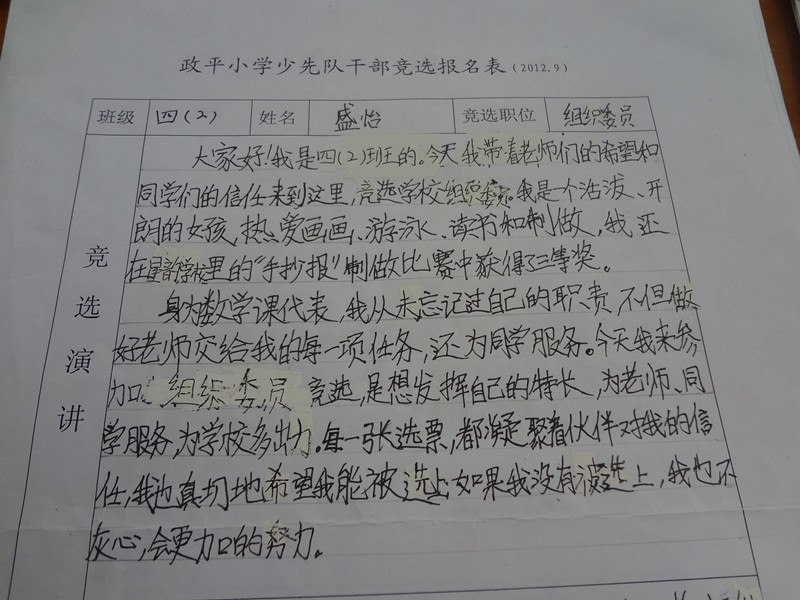 政平小学少先队干部竞选报名表(2012.9)
班级 四(2) 姓名 盛怡 竞选职位 组织委员
竞选演讲
大家好!我是四(2)班的。今天我带着老师们的希望和
同学们的信任来到这里,竞选学校组织委员。我是一个活泼、开
朗的女孩,热爱画画、游泳、读书和制做,我还
在 学校里的“手抄报”制做比赛中获得了三等奖。
身为数学课代表,我从未忘记过自己的职责,不但做
好老师交给我的每一项任务,还为同学服务。今天我来参
加 组织委员 竞选,是想发挥自己的特长,为老师、同
学服务,为学校多出力。每一张选票,都凝聚着伙伴对我的信
任,我也真切地希望我能被选上,如果我没有被选上,我也不
灰心,会更加的努力。